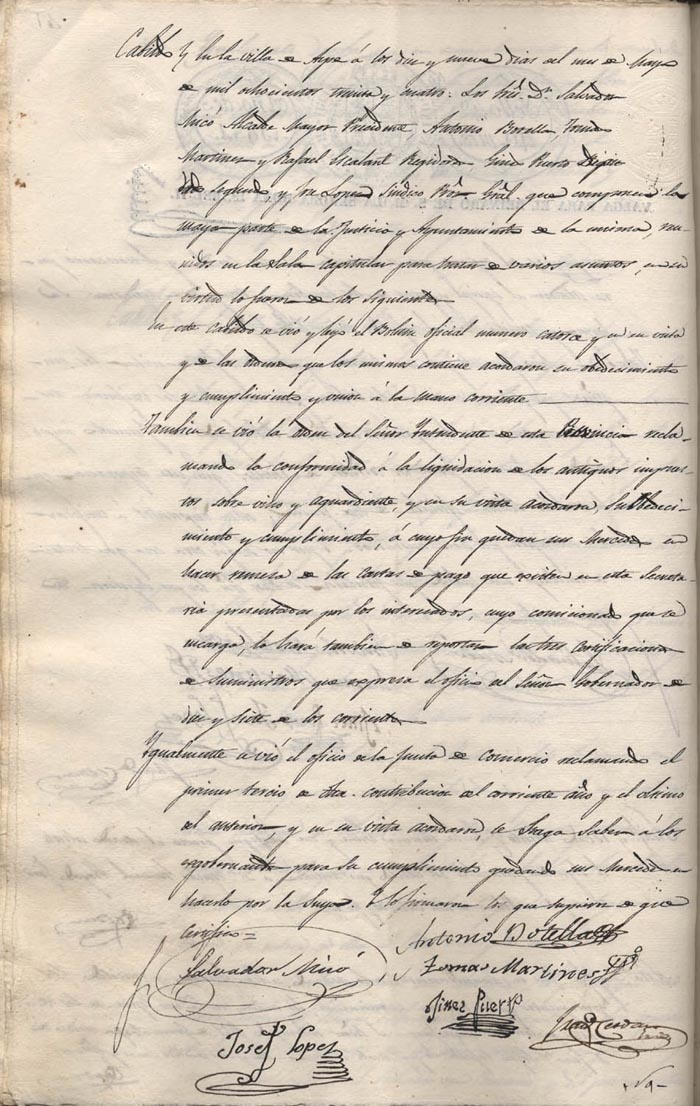 Cabildo Y En la villa de Aspe á los diez y nueve dias del mes de Mayo
de mil ochocientos treinta y cuatro: Los Sres. Dn. Salvador
Micó Alcalde Mayor Presidente, Antonio Botella, Tomas
Martinez y Rafael Escalant Regidores Gines Puerto
segundo, y Jose Lopez Sindico Pror. Gral. que componen la
mayor parte de la Justicia y Ayuntamiento de la misma, reu-
nidos en la Sala capitular para tratar de varios asuntos, en su
virtud lo fueron de los siguientes
En este Cabildo se vió y leyó el Boletin oficial numero catorce y en su vista
y de las ordenes que los mismos contiene acordaron su obedecimiento
y cumplimiento y union á la mano corriente
Tambien se vió la orden del Señor Yntendente de esta Provincia recla-
mando la conformidad á la liquidacion de los antiguos impues-
tos sobre vino y aguardiente, y en su vista acordaron, su obedeci-
miento y cumplimiento, á cuyo fin quedan sus Mercedes en
hacer remesa de las cartas de pago que existen en esta Secreta-
ria presentadas por los interesados, cuyo comicionado que se
encarga, lo hará tambien de reportar las tres certificaciones
de suministros que expresa el oficio del Señor Gobernador de
diez y siete de los corrientes
Ygualmente se vió el oficio de la Junta de Comercio reclamando el
primer tercio de dha. contribucion del corriente año y el último
del anterior, y en su vista acordaron, se haga saber á los
para su cumplimiento quedando sus Mercedes en
hacerlo por la suya. Y lo firmaron los que supieron de que
Certifico=
Salvador Micó
Antonio Botella
Tomas Martines
Gines Puerto
Josef Lopez